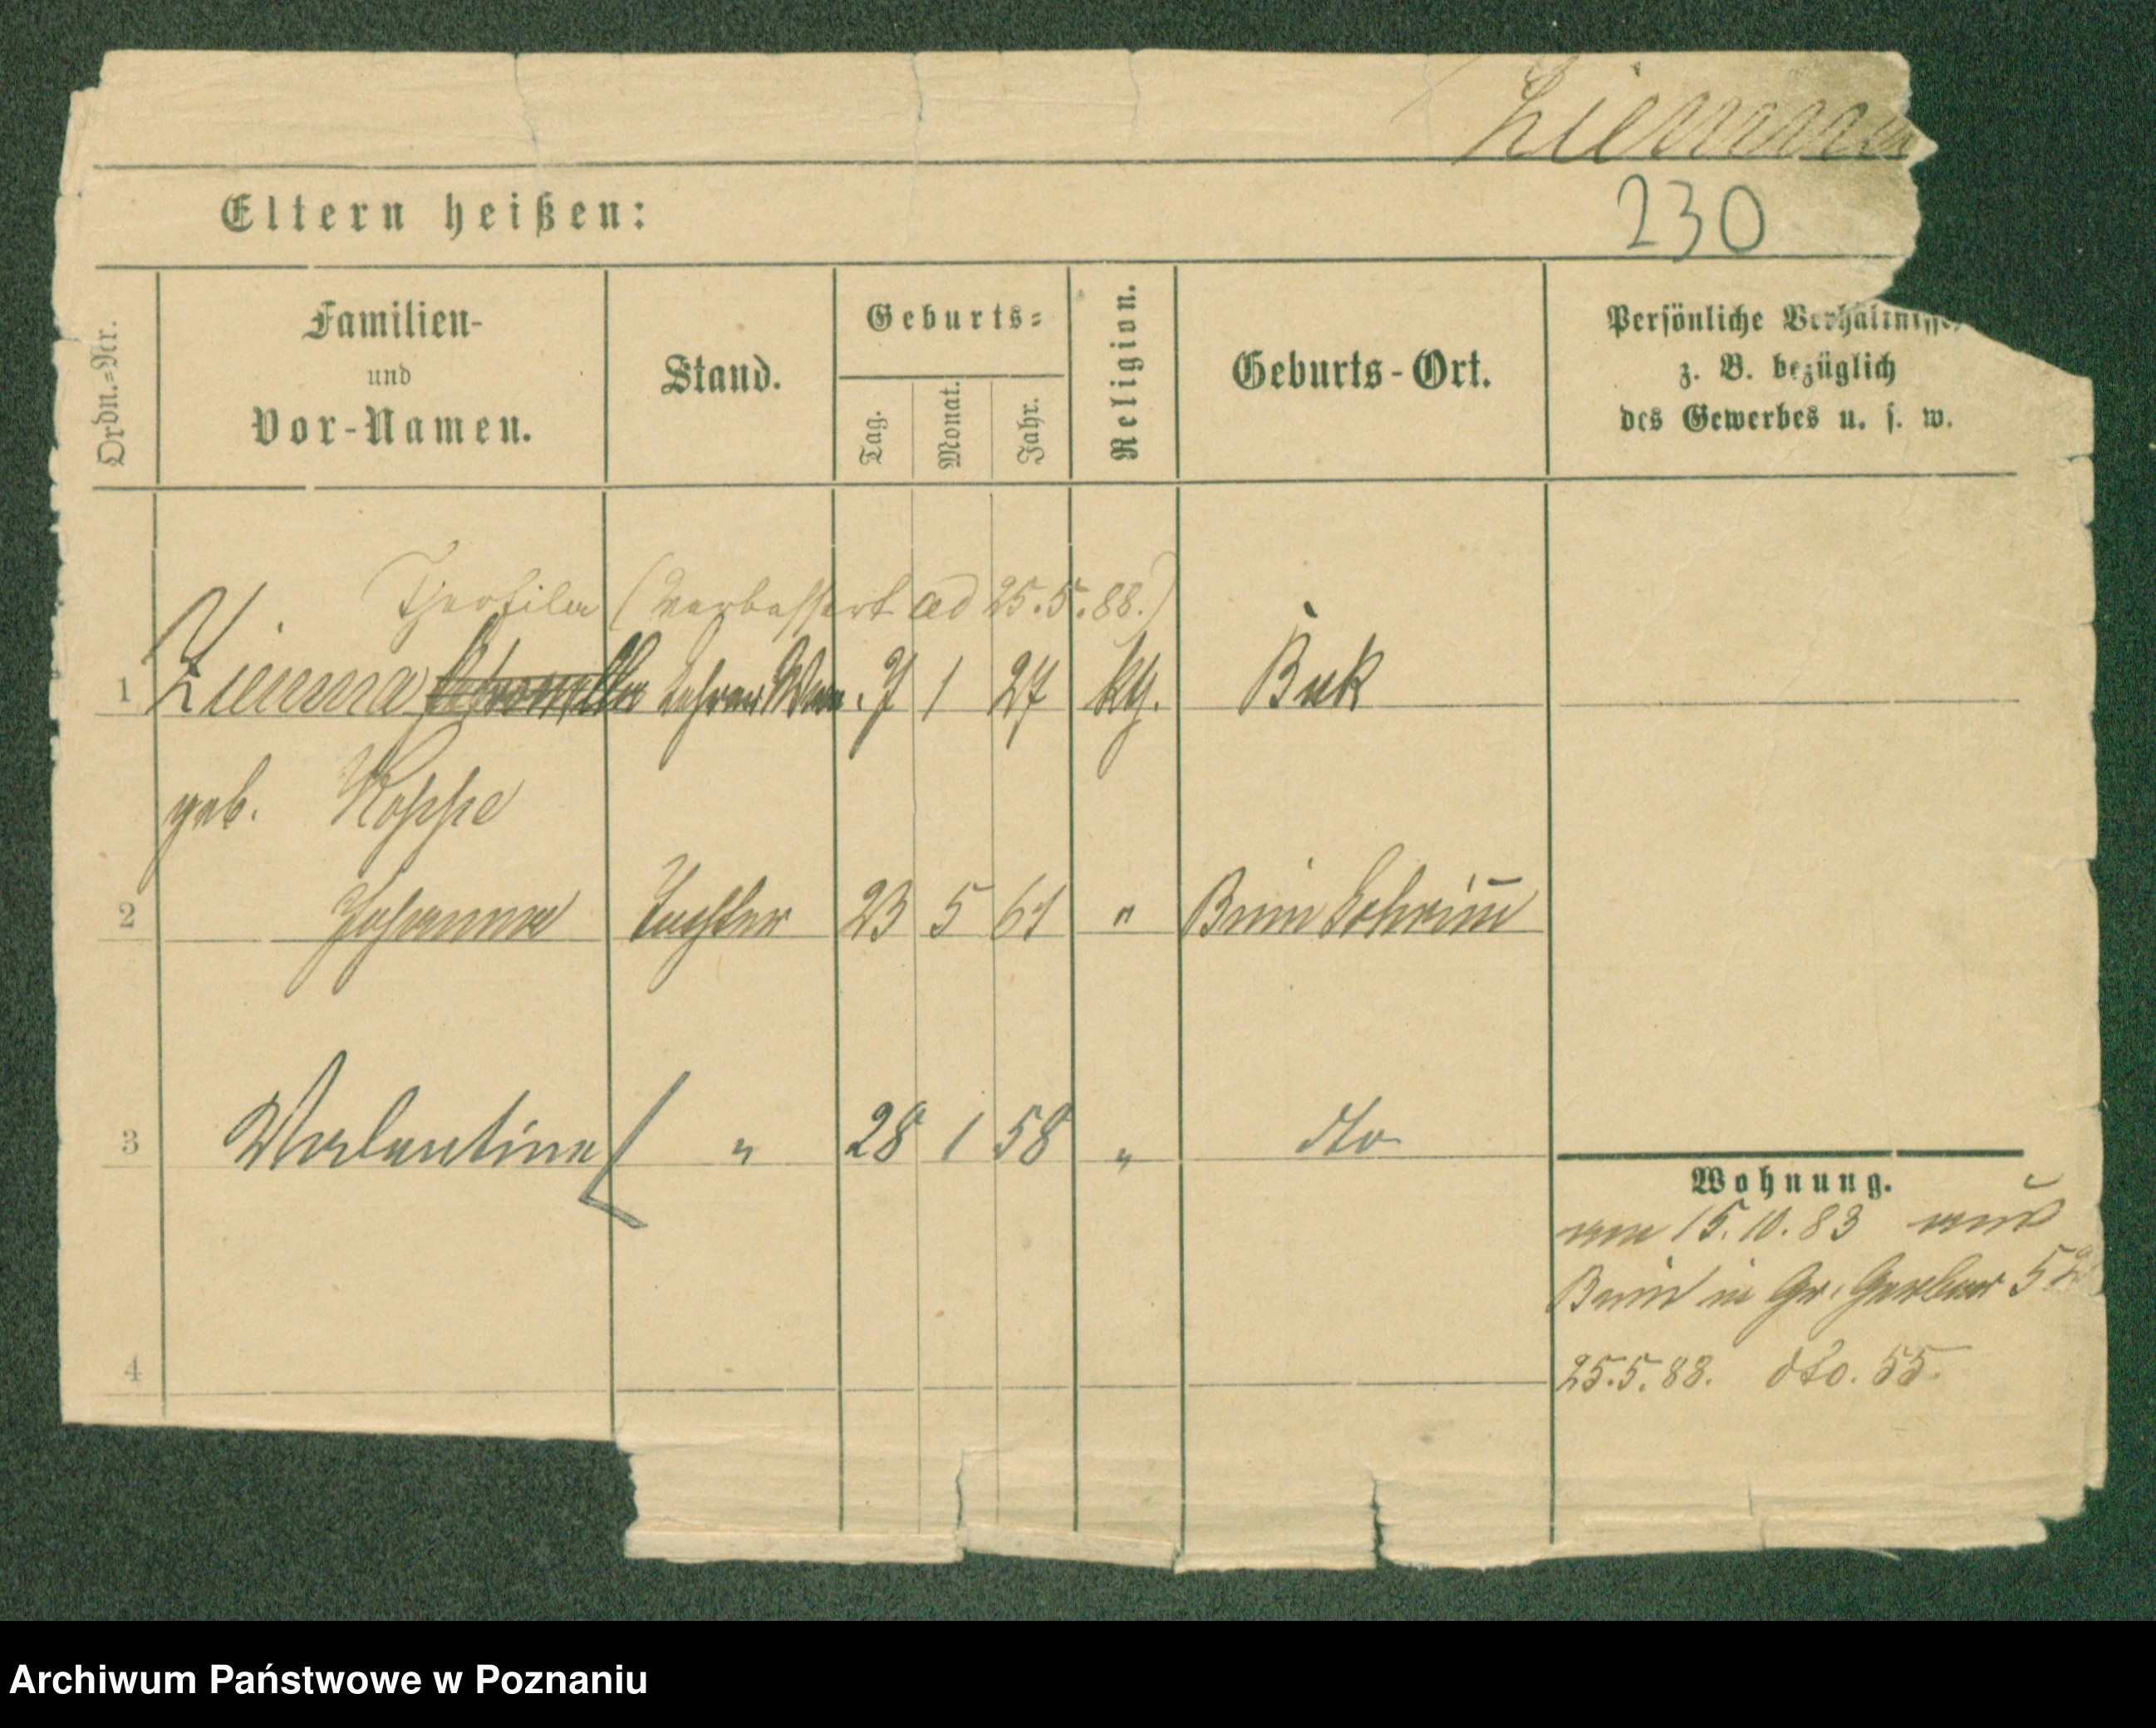 Ziemma
230
Eltern heißen:
Ordn.=Nr.
Familien-
und
Vor-Namen.
Stand.
Geburts=
Tag.
Monat.
Jahr.
Religion.
Geburts-Ort.
Persönliche Verhältnisse,
z. B. bezüglich
des Gewerbes u. s. w.
Theofila (verbessert ad 25.5.88.)
1 Ziemma Lehrer Wwe. 7 1 27 kth. Buk
geb. Koppe
2 Johanna Tochter 23 5 61 " Bnin Schrimm
3 Valentina " 28 1 58 " dto
4
Wohnung.
15.10.83 aus
Bnin in Gr. Gerber 52
25.5.88. dto. 55.
Archiwum Państwowe w Poznaniu